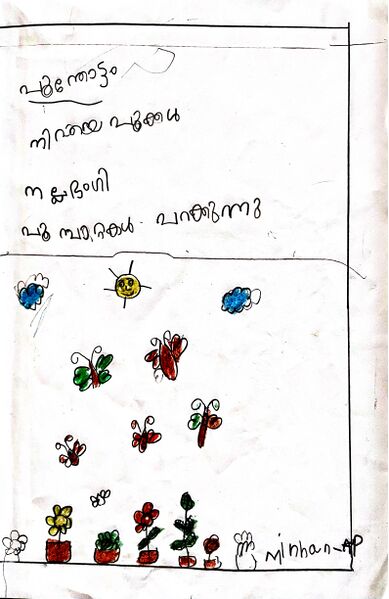 പൂന്തോട്ടം
നിറയെ പൂക്കൾ
നല്ലഭംഗി
പൂമ്പാറ്റകൾ പറക്കുന്നു
Minhan-AP